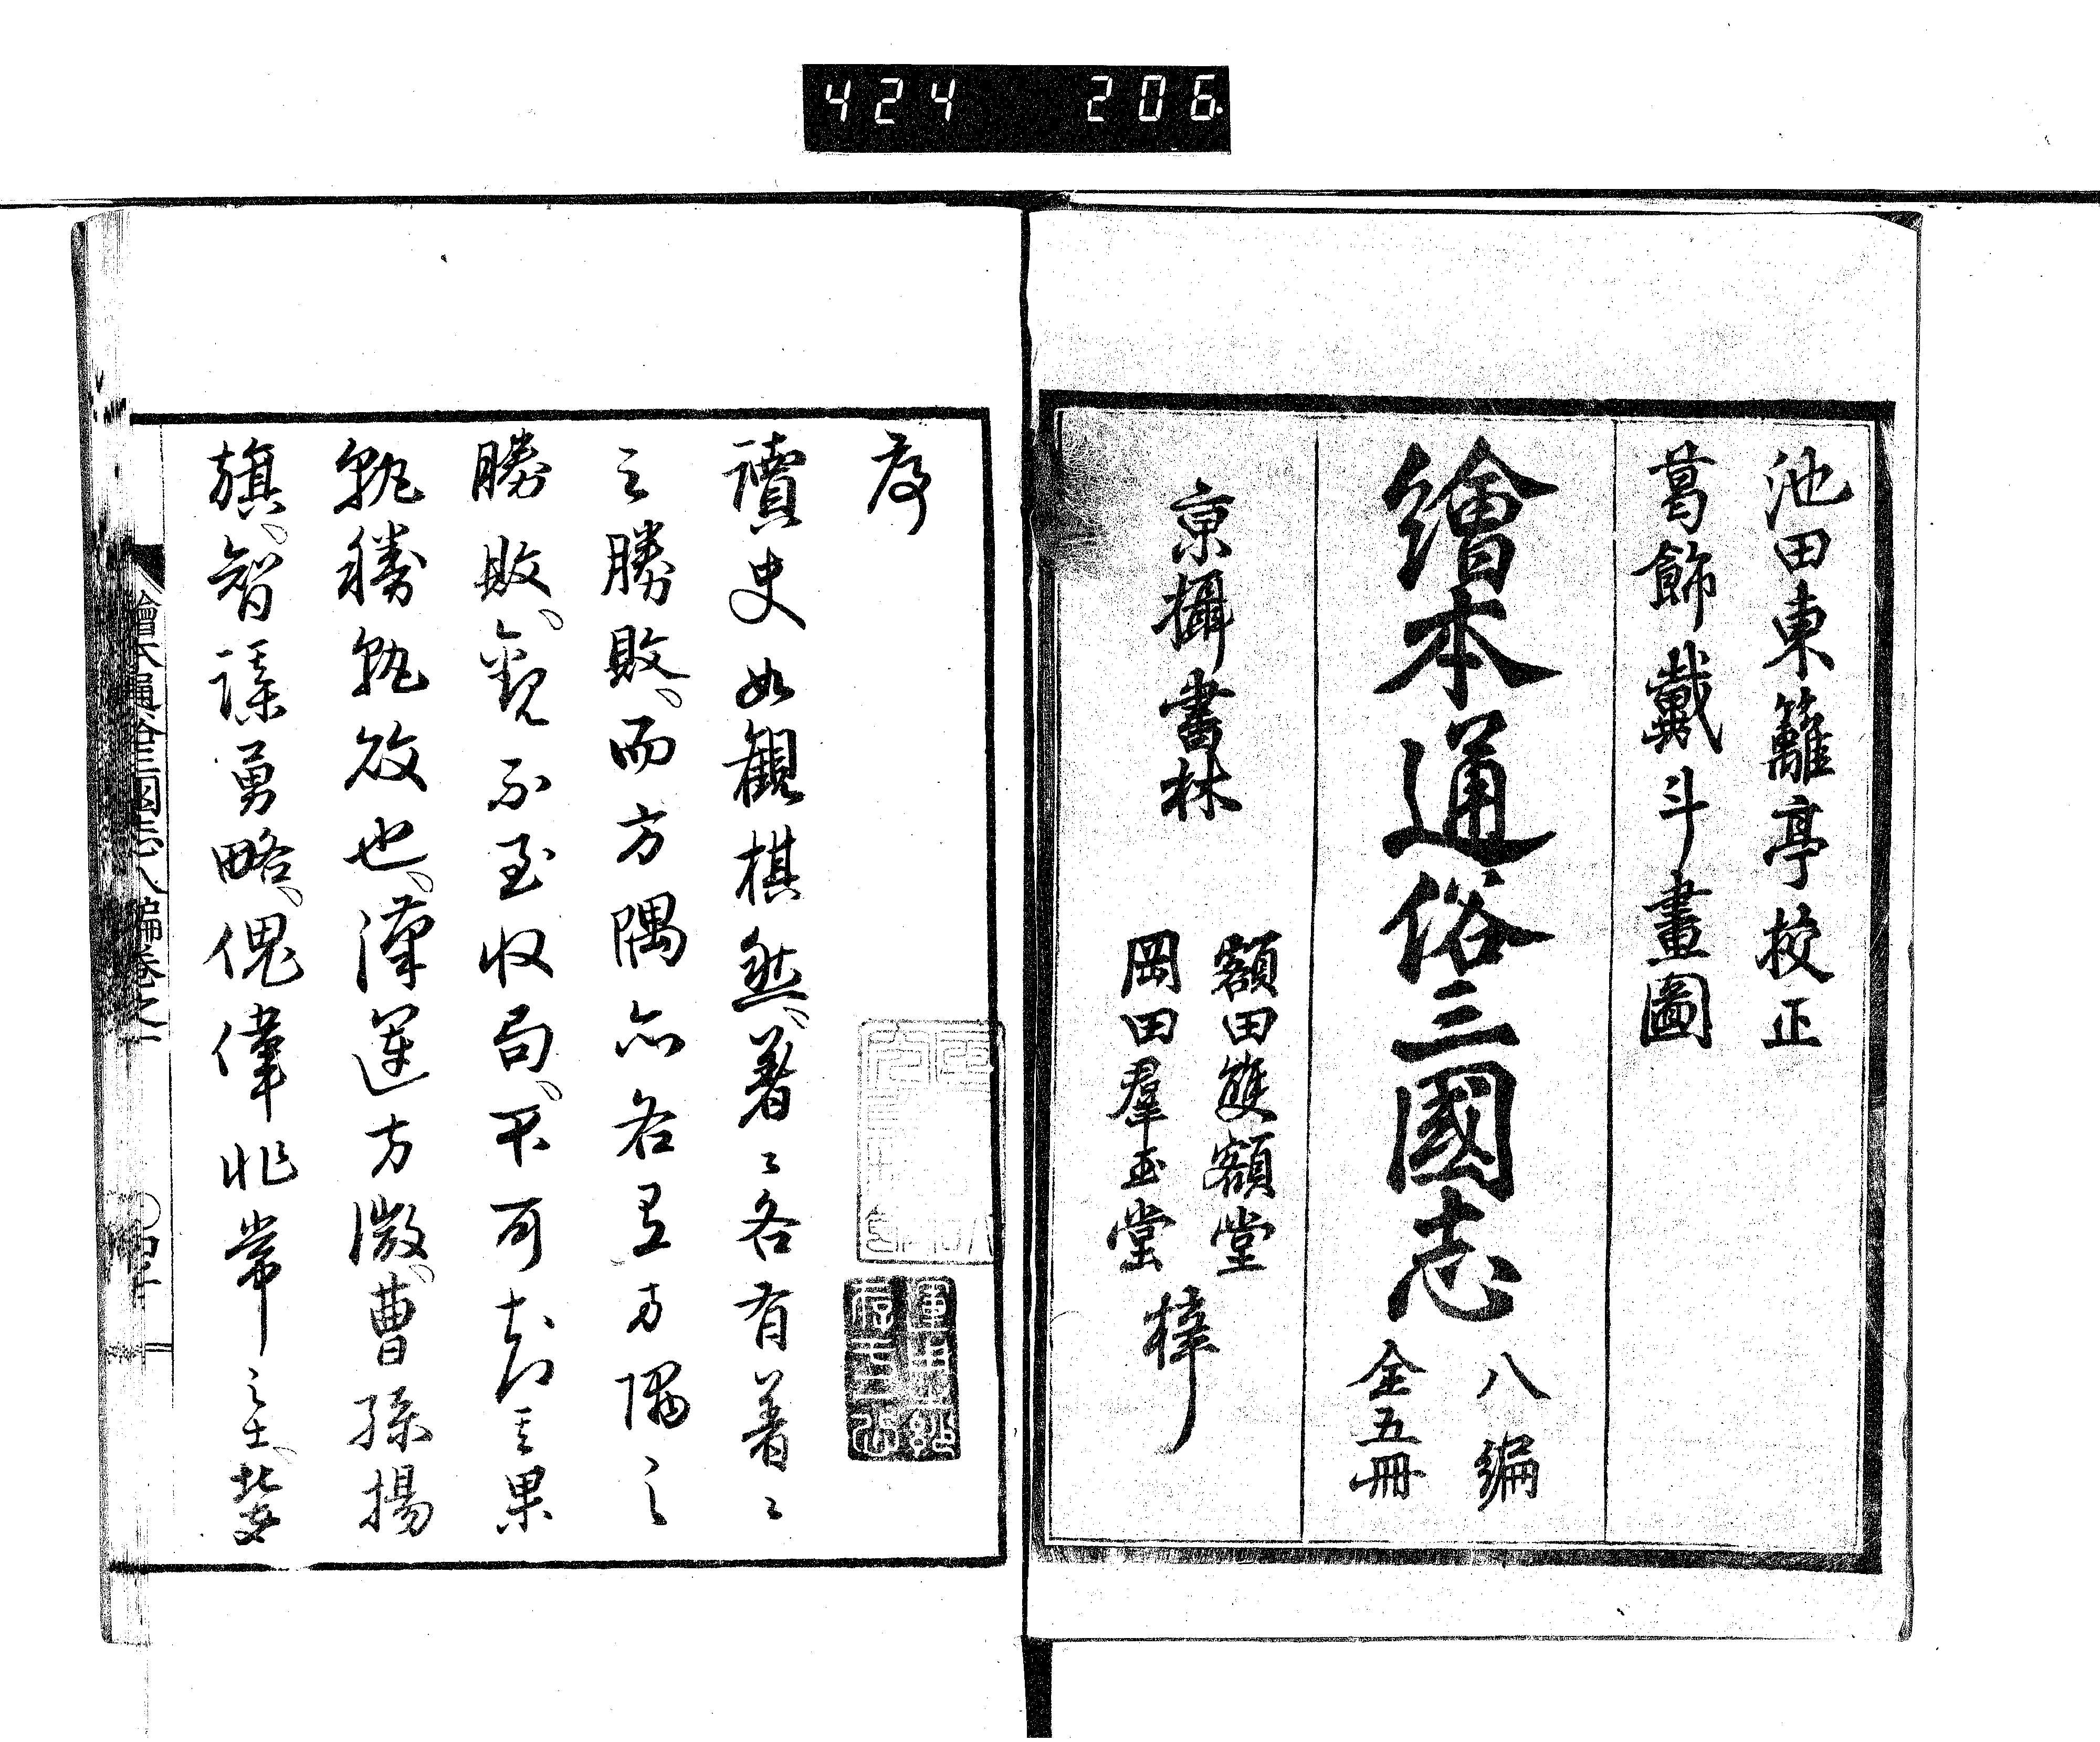 424 206
池田東籬亭校正
葛飾戴斗畫圖
繪本通俗三國志
八編
全五冊
京攝書林
額田雙額堂
岡田羣玉堂
梓
序
讀史如觀棋然、著〻各有著〻
之勝敗、而方隅亦各有方隅之
勝敗、觀不至收局、不可知其果
孰勝孰敗也、漢運方微、曹孫揚
旗、智謀勇略、傀偉非常之士、
繪本通俗三國志八編卷之一